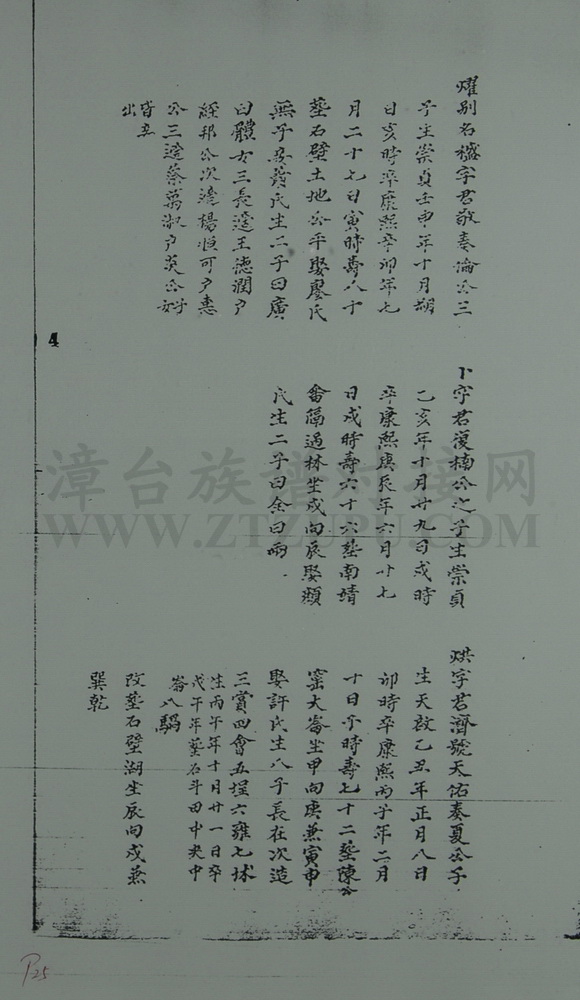 燿别名樾字君敬奏倫公三
子生崇貞壬申年十月朔
日亥時卒康熙辛卯年七
月二十七日寅時壽八十
塟石壁土地公平娶廖氏
無子妾黄氏生二子曰廣
曰體女三長適王德潤户
經邦公次適楊恒可户惠
公三適蔡萬淑户英公
皆妾
出
卜字君復楠公之子生崇貞
乙亥年十月廿九日戌時
卒康熙庚辰年六月廿七
日戌時壽六十六塟南靖
畬隔過林坐戌向辰娶賴
氏生二子曰余曰兩
烘字君濟號天佑奏夏公子
生天啟乙丑年正月八日
卯時卒康熙丙子年二月
十日子時壽七十二塟陳公
窑大崙坐甲向庚兼寅申
娶許氏生八子長在次造
三賞四會五埕六雍七球
生丙午年十月廿一日卒
戊午年塟石斗田中央中
崙八騆
改塟石壁湖坐辰向戌兼
巽乾
4
漳台族譜对接网
WWW.ZTZUPU.COM
P25